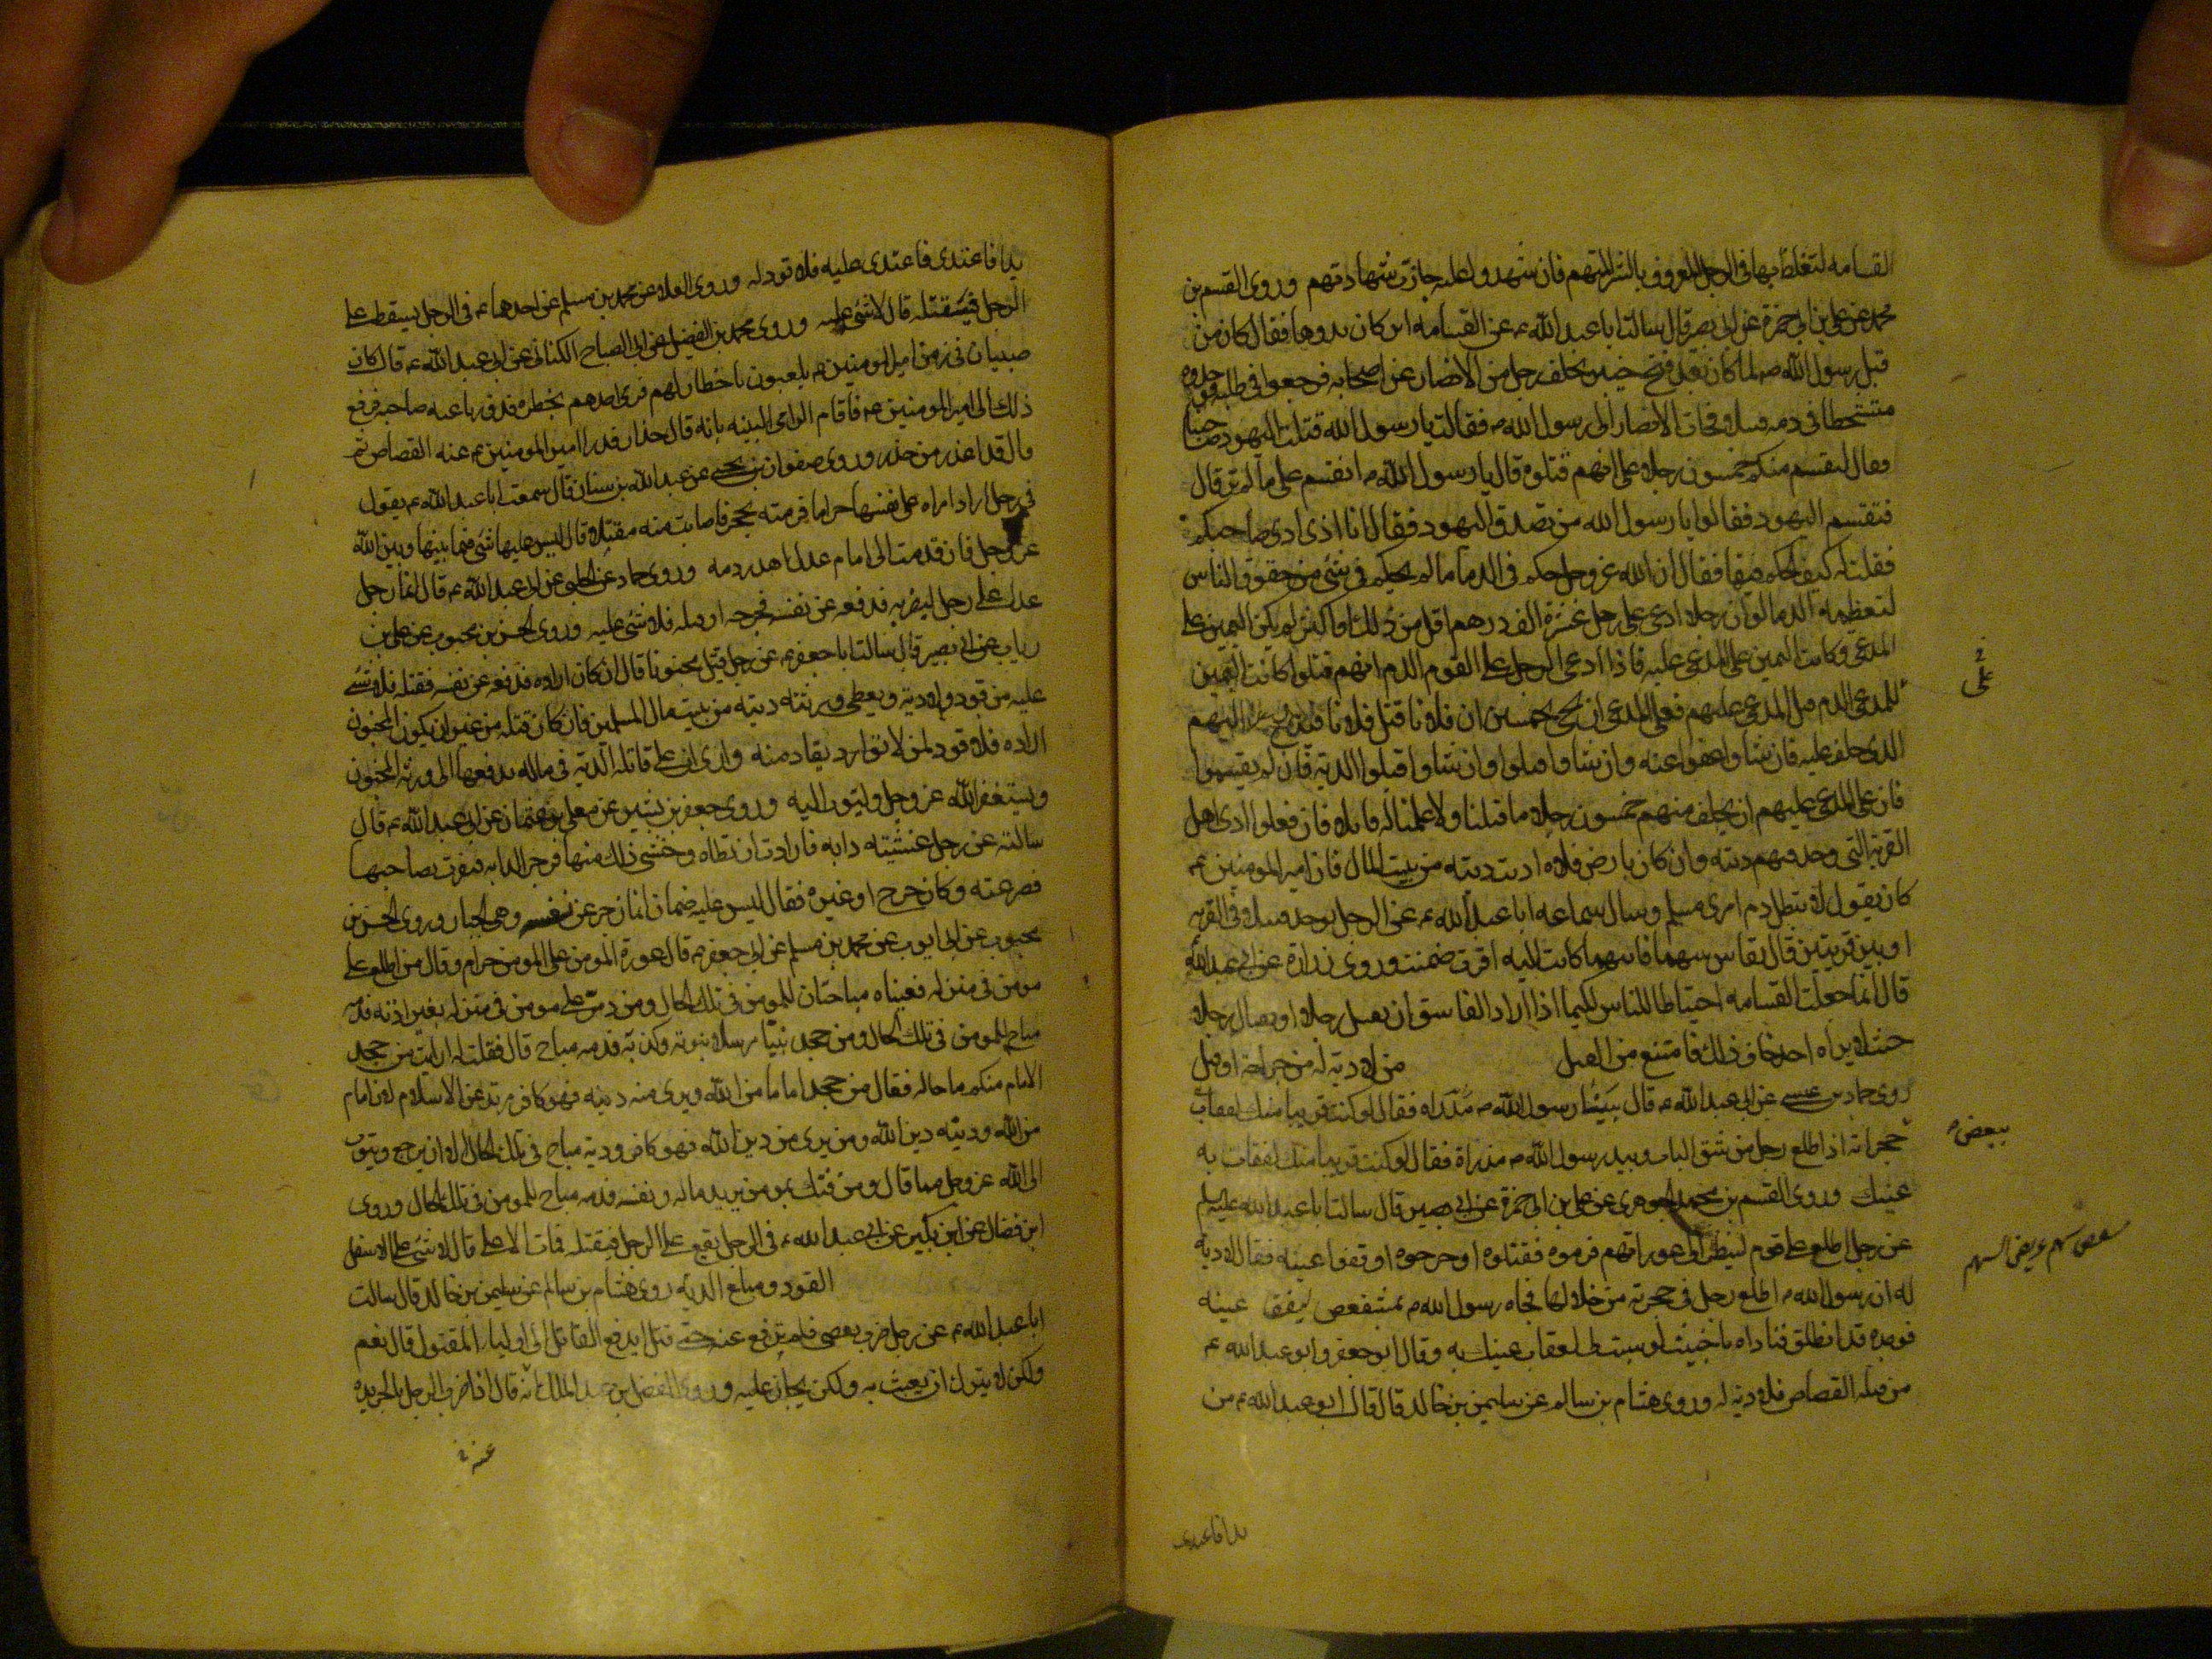 القسامه لتغلظ بها في الرجل المعروف بالشر المتهم فان شهدوا عليه جازت شهادتهم وروى القسم بن
محمد عن علي بن ابي حمزة عن ابي بصير قال سالت ابا عبد الله ع عن القسامه اين كان بدوها فقال كان من
قبل رسول الله ص لما كان بعد فتح خيبر تخلف رجل من الانصار عن اصحابه فرجعوا في طلبه فوجدوه
متشحطا في دمه قتيلا فجات الانصار الى رسول الله ص فقالت يا رسول الله قتلت اليهود صاحبنا
فقال ليقسم منكم خمسون رجلا على انهم قتلوه قال يا رسول الله انقسم على ما لم نر قال
فتقسم اليهود فقالوا يا رسول الله من يصدق اليهود فقال انا اذى ادى صاحبكم
فقلت له كيف الحكم فيها فقال ان الله عز وجل حكم في الدما ما لم يحكم في شي من حقوق الناس
لتعظيمه الدما لو ان رجلا ادعى على رجل عشرة الف درهم اقل من ذلك او اكثر لم يكن اليمين على
المدعي وكانت اليمين على المدعى عليه فاذا ادعى الرجل على القوم الدم انهم قتلوا كانت اليمين
للمدعي الدم قبل المدعى عليهم فعلى المدعي ان يجي بخمسين ان فلانا قتل فلانا فيدفع اليهم
الذي حلف عليه فان شاوا عفوا عنه وان شاوا قتلوا وان شاوا قبلوا الدية فان لم يقسموا
فان على المدعى عليهم ان يحلف منهم خمسون رجلا ما قتلنا ولا علمنا له قاتلا فان فعلوا ادى اهل
القرية التي وجد فيهم ديته وان كان بارض فلاه اديت ديته من بيت المال فان امير المومنين ع
كان يقول لا يبطل دم امرى مسلم وسال سماعه ابا عبد الله ع عن الرجل يوجد قتيلا في القريه
او بين قريتين قال يقاس بينهما فايهما كانت اليه اقرب ضمنت وروى زرارة عن ابي عبد الله
قال انما جعلت القسامه احتياطا للناس لكيما اذا اراد الفاسق ان يقتل رجلا او يغتال رجلا
حيث لا يراه احد خاف ذلك فامتنع من القتل من لا دية له من جراحة او قتل
روى حماد بن عيسى عن ابي عبد الله ع قال بينا رسول الله ص
حجراته اذ اطلع رجل من شق الباب وبيد رسول الله ص مدراة فقال لو كنت قريبا منك لفقات به
عينك وروى القسم بن محمد الجوهري عن علي بن ابي حمزة عن ابي بصير قال سالت ابا عبد الله عليه السلم
عن رجل اطلع على قوم لينظر الى عوراتهم فرموه فقتلوه او جرحوه او فقوا عينه فقال لا دية
له ان رسول الله ص اطلع رجل في حجرته من خلالها فجاه رسول الله ص بمشقص ليفقا عينه
فوجده قد انطلق فناداه يا خبيث لو ثبت لي لفقات عينك به وقال ابو جعفر وابو عبد الله ع
من قتله القصاص فلا دية له وروى هشام بن سالم عن سليمن بن خالد قال قال ابو عبد الله ع من
على
ببعض
بدا فاعتدى
بدا فاعتدى فاعتدى عليه فلا قود له وروى العلا عن محمد بن مسلم عن احدهما ع في الرجل يسقط على
الرجل فيقتله قال لا شي عليه وروى محمد بن الفضيل عن ابي الصباح الكناني عن ابي عبد الله ع قال كان
صبيان في زمن امير المومنين ع يلعبون باخطار لهم فرمى احدهم بخطره فدق رباعيه صاحبه فرفع
ذلك الى امير المومنين ع فاقام الرامي البينه بانه قال حذار فدرا امير المومنين ع عنه القصاص ثم
قال قد اعذر من حذر وروى صفوان بن يحيى عن عبد الله بن سنان قال سمعت ابا عبد الله ع يقول
في رجل اراد امراه على نفسها حراما فرمته بحجر فاصابت منه مقتلا قال ليس عليها شي فيما بينها وبين الله
عز وجل فان قدمت الى امام عدل اهدر دمه وروى حماد عن الحلبي عن ابي عبد الله ع قال ايما رجل
عدا على رجل ليضربه فدفعه عن نفسه فجرحه او قتله فلا شي عليه وروى الحسن بن محبوب عن علي بن
رياب عن ابي بصير قال سالت ابا جعفر ع عن رجل قتل مجنونا قال ان كان اراده فدفعه عن نفسه فقتله فلا شي
عليه من قود ولا دية ويعطى ورثته ديته من بيت مال المسلمين فان كان قتله من غير ان يكون المجنون
اراده فلا قود لمن لا يقاد منه وارى ان على قاتله الدية في ماله يدفعها الى ورثة المجنون
ويستغفر الله عز وجل ويتوب اليه وروى جعفر بن بشير عن معلى بن عثمان عن ابي عبد الله ع قال
سالته عن رجل غشيته دابه فارادت ان تطاه وخشي ذلك منها فزجر الدابه فنفرت بصاحبها
فصرعته وكان جرح او غيره فقال ليس عليه ضمان انما زجر عن نفسه وهي الجبار وروى الحسن بن
محبوب عن ابي ايوب عن محمد بن مسلم عن ابي جعفر ع قال عورة المومن على المومن حرام وقال من اطلع على
مومن في منزله فعيناه مباحتان للمومن في تلك الحال ومن دمر على مومن في منزله بغير اذنه فدمه
مباح للمومن في تلك الحال ومن جحد نبيا مرسلا نبوته وكذبه فدمه مباح قال فقلت له ارايت من جحد
الامام منكم ما حاله فقال من جحد اماما من الله وبرى منه ومن دينه فهو كافر مرتد عن الاسلام لان الامام
من الله ودينه دين الله ومن برى من دين الله فهو كافر ودمه مباح في تلك الحال الا ان يرجع ويتوب
الى الله عز وجل مما قال ومن فتك بمومن يريد ماله ونفسه فدمه مباح للمومن في تلك الحال وروى
ابن فضال عن ابن بكير عن ابي عبد الله ع في الرجل يقع على الرجل فيقتله فمات الاعلى قال لا شي على الاسفل
القود ومبلغ الدية روى هشام بن سالم عن سليمن بن خالد قال سالت
ابا عبد الله ع عن رجل ضرب بعصى فلم ترفع عنه حتى قتل ايدفع القاتل الى اوليا المقتول قال نعم
ولكن لا يترك ان يعبث به ولكن يجاز عليه وروى الفضل بن عبد الملك انه قال اذا ضرب الرجل بالحديده
عنه